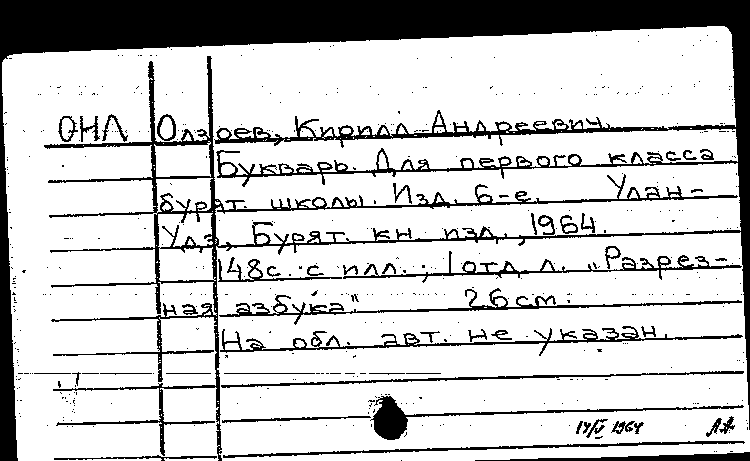 ОНЛ Олзоев, Кирилл Андреевич.
Букварь. Для первого класса
бурят. школы. Изд. 6-е. Улан-
Удэ, Бурят. кн. изд., 1964.
148с. с илл.; 1 отд. л. „Разрез-
ная азбука". 26 см.
На обл. авт. не указан.
14/V 1964 АА